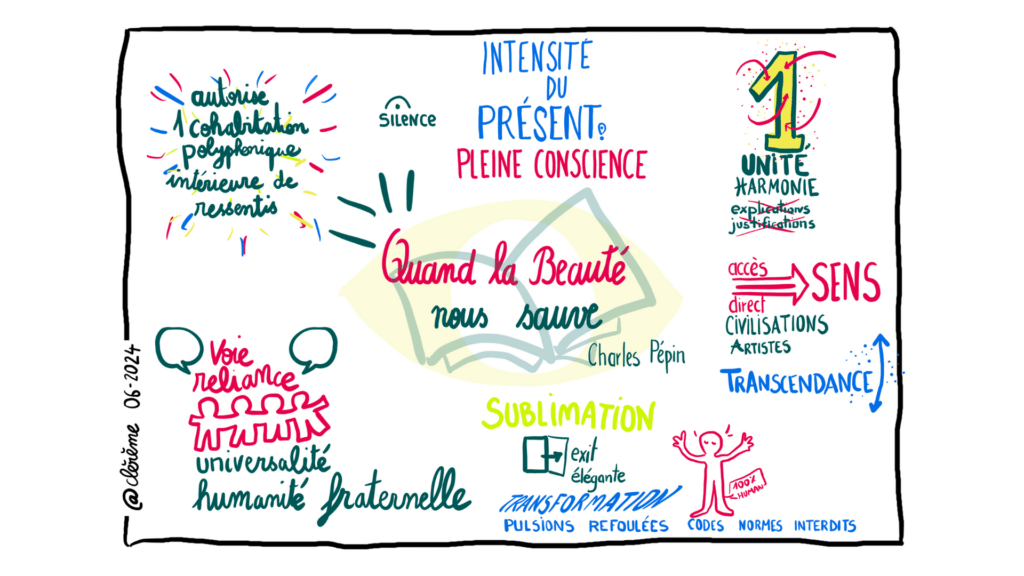 autorise
1 cohabitation
polyphonique
intérieure de
ressentis
SILENCE
INTENSITÉ
DU
PRÉSENT
PLEINE CONSCIENCE
1
UNITÉ
HARMONIE
explications
justifications
Quand la Beauté
nous sauve
Charles Pépin
accès
direct
SENS
CIVILISATIONS
ARTISTES
TRANSCENDANCE
Voie
reliance
universalité
humanité fraternelle
SUBLIMATION
exit
élégante
TRANSFORMATION
PULSIONS REFOULÉES CODES NORMES INTERDITS
100%
HUMAN
@clérème 06-2024